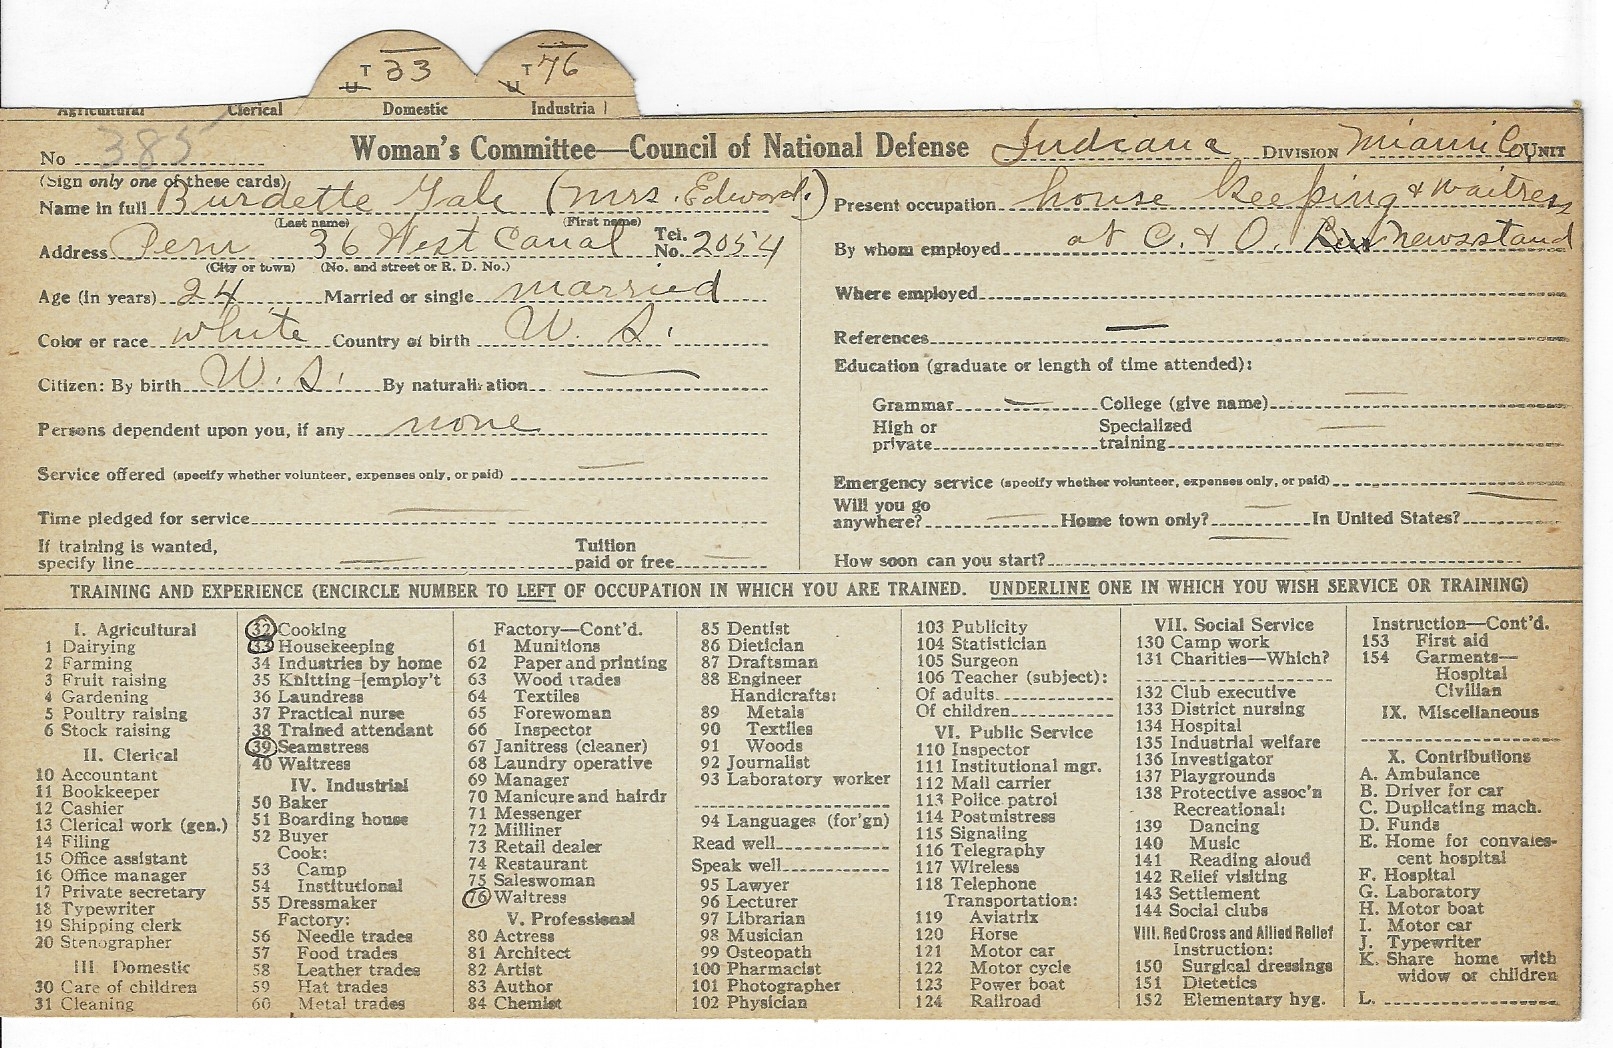 T 33 T 76
U U
Agricultural Clerical Domestic Industrial
No 385 Woman's Committee—Council of National Defense Indiana DIVISION Miami Co UNIT
(Sign only one of these cards)
Name in full Burdette Gale (Mrs. Edward.)
(Last name) (First name)
Address Peru 36 West Canal Tel. No. 2054
(City or town) (No. and street or R. D. No.)
Age (in years) 24 Married or single married
Color or race white Country of birth U. S.
Citizen: By birth U. S. By naturalization
Persons dependent upon you, if any none
Service offered (specify whether volunteer, expenses only, or paid)
Time pledged for service
If training is wanted, specify line Tuition paid or free
Present occupation house keeping & waitress
By whom employed at C. & O. Newsstand
Where employed
References
Education (graduate or length of time attended):
Grammar College (give name)
High or private Specialized training
Emergency service (specify whether volunteer, expenses only, or paid)
Will you go anywhere? Home town only? In United States?
How soon can you start?
TRAINING AND EXPERIENCE (ENCIRCLE NUMBER TO LEFT OF OCCUPATION IN WHICH YOU ARE TRAINED. UNDERLINE ONE IN WHICH YOU WISH SERVICE OR TRAINING)
I. Agricultural
1 Dairying
2 Farming
3 Fruit raising
4 Gardening
5 Poultry raising
6 Stock raising
II. Clerical
10 Accountant
11 Bookkeeper
12 Cashier
13 Clerical work (gen.)
14 Filing
15 Office assistant
16 Office manager
17 Private secretary
18 Typewriter
19 Shipping clerk
20 Stenographer
III Domestic
30 Care of children
31 Cleaning
32 Cooking
33 Housekeeping
34 Industries by home
35 Knitting [employ't
36 Laundress
37 Practical nurse
38 Trained attendant
39 Seamstress
40 Waitress
IV. Industrial
50 Baker
51 Boarding house
52 Buyer
Cook:
53 Camp
54 Institutional
55 Dressmaker
Factory:
56 Needle trades
57 Food trades
58 Leather trades
59 Hat trades
60 Metal trades
Factory—Cont'd.
61 Munitions
62 Paper and printing
63 Wood trades
64 Textiles
65 Forewoman
66 Inspector
67 Janitress (cleaner)
68 Laundry operative
69 Manager
70 Manicure and hairdr
71 Messenger
72 Milliner
73 Retail dealer
74 Restaurant
75 Saleswoman
76 Waitress
V. Professional
80 Actress
81 Architect
82 Artist
83 Author
84 Chemist
85 Dentist
86 Dietician
87 Draftsman
88 Engineer
Handicrafts:
89 Metals
90 Textiles
91 Woods
92 Journalist
93 Laboratory worker
94 Languages (for'gn)
Read well
Speak well
95 Lawyer
96 Lecturer
97 Librarian
98 Musician
99 Osteopath
100 Pharmacist
101 Photographer
102 Physician
103 Publicity
104 Statistician
105 Surgeon
106 Teacher (subject):
Of adults
Of children
VI. Public Service
110 Inspector
111 Institutional mgr.
112 Mail carrier
113 Police patrol
114 Postmistress
115 Signaling
116 Telegraphy
117 Wireless
118 Telephone
Transportation:
119 Aviatrix
120 Horse
121 Motor car
122 Motor cycle
123 Power boat
124 Railroad
VII. Social Service
130 Camp work
131 Charities—Which?
132 Club executive
133 District nursing
134 Hospital
135 Industrial welfare
136 Investigator
137 Playgrounds
138 Protective assoc'n
Recreational:
139 Dancing
140 Music
141 Reading aloud
142 Relief visiting
143 Settlement
144 Social clubs
VIII. Red Cross and Allied Relief
Instruction:
150 Surgical dressings
151 Dietetics
152 Elementary hyg.
Instruction—Cont'd.
153 First aid
154 Garments—
Hospital
Civilian
IX. Miscellaneous
X. Contributions
A. Ambulance
B. Driver for car
C. Duplicating mach.
D. Funds
E. Home for convales-
cent hospital
F. Hospital
G. Laboratory
H. Motor boat
I. Motor car
J. Typewriter
K. Share home with
widow or children
L.